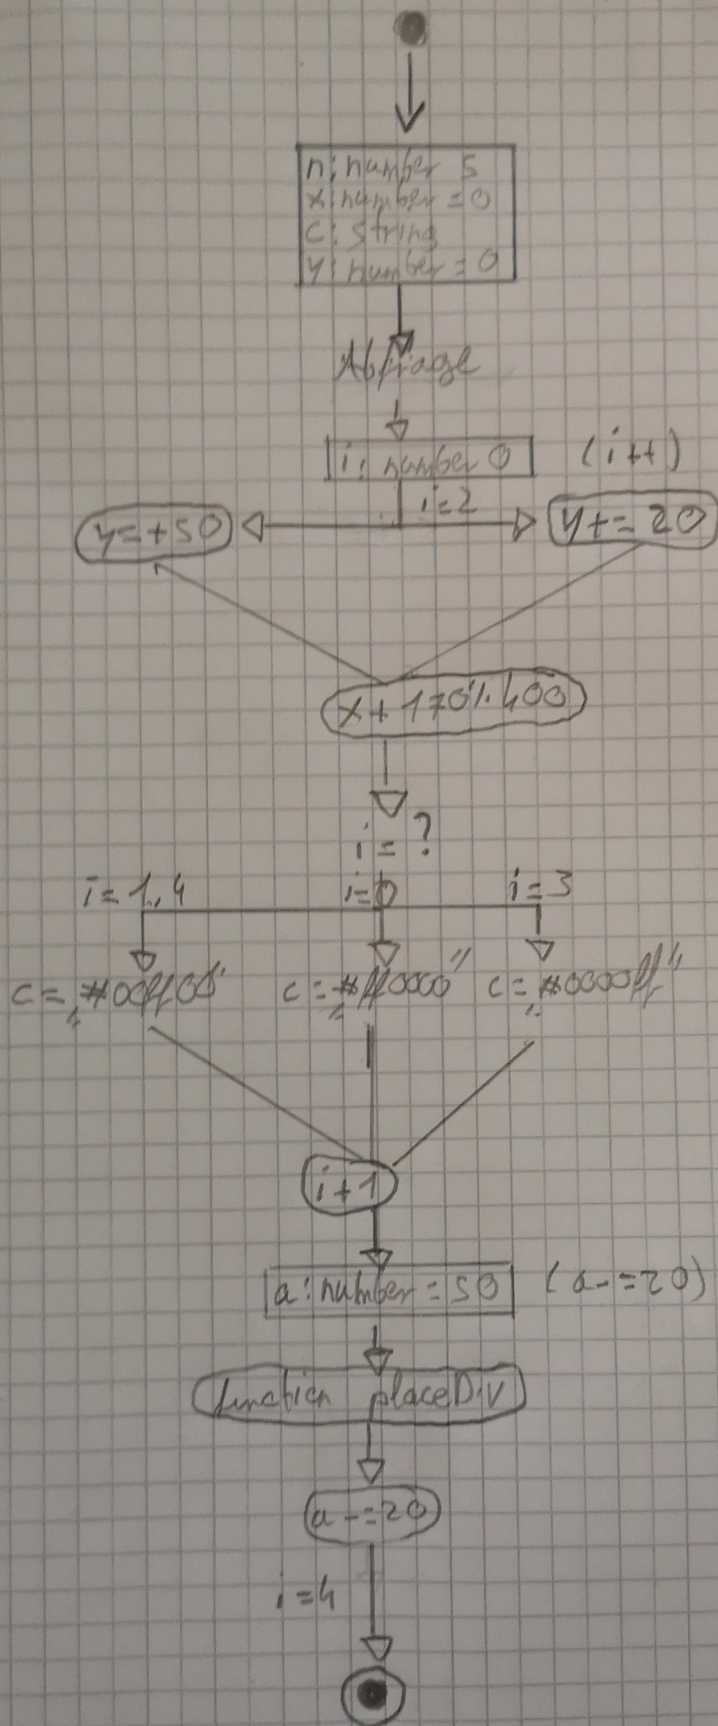 n: number 5
x: number = 0
c: string
y: number = 0
Abfrage
i: number 0 (i++)
i=2
y=+50 y+=20
x+170%400
i=?
i=1,4 i=0 i=3
c=„#00ff00" c=„#ff0000" c=„#0000ff"
i+1
a: number = 50 (a-=20)
function placeDiv
a-=20
i=4